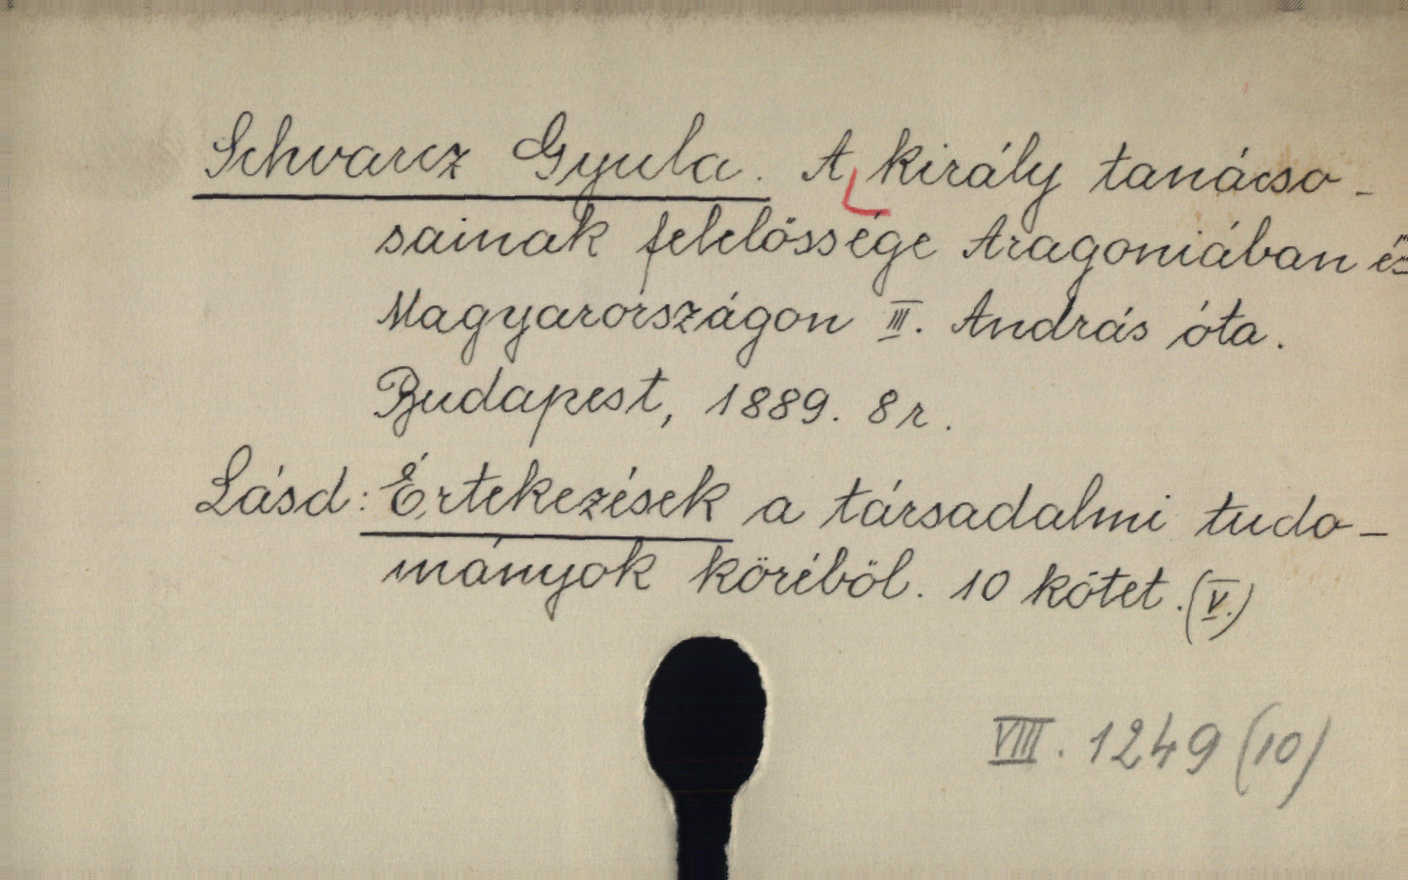 Schvarcz Gyula. A király tanácso-
sainak felelőssége Aragoniában és
Magyarországon III. András óta.
Budapest, 1889. 8r.
Lásd: Értekezések a társadalmi tudo-
mányok köréből. 10 kötet. (V.)
VIII. 1249 (10)